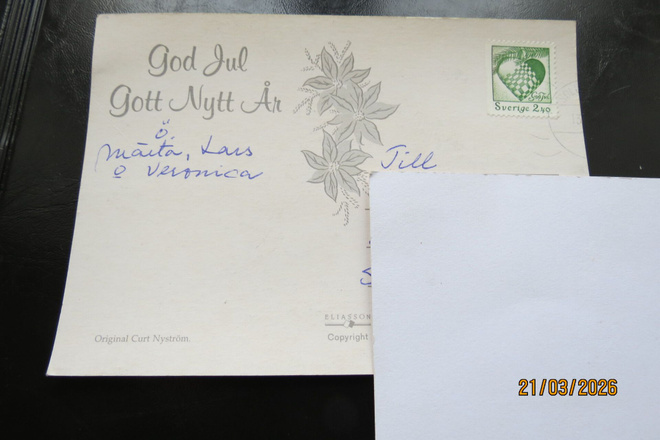 God Jul
Gott Nytt År
ö.
Märta, Lars
o Veronica
Till
Sverige 2,40
ELIASSON
Copyright
Original Curt Nyström.
21/03/2026